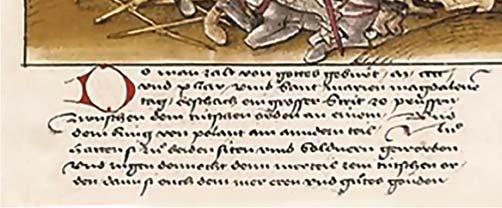 Do man zalt von gottes geburt m cccc
vnd x Jar vmb Sant marien magdalenen
tag beschach ein grosser Strit zo prüssen
zwüschen dem tütschen orden an einem Vnd
dem küng von polant am anndern teil Vnd
hatten si zu beiden siten vmb soldner geworben
vnd zugen dennocht denn merteil dem tütschen or
den dann si ouch dem mer eren vnd gütes gonden